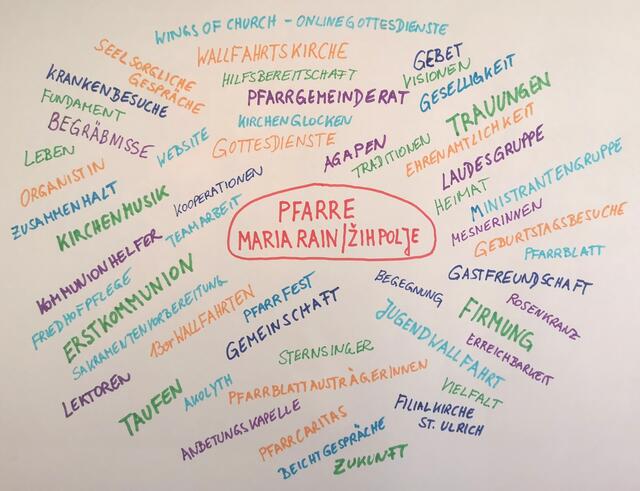 WINGS OF CHURCH - ONLINEGOTTESDIENSTE
SEELSORGLICHE
GESPRÄCHE
WALLFAHRTSKIRCHE
GEBET
KRANKENBESUCHE
HILFSBEREITSCHAFT
VISIONEN
FUNDAMENT
PFARRGEMEINDERAT
GESELLIGKEIT
BEGRÄBNISSE
KIRCHENGLOCKEN
TRAUUNGEN
LEBEN
WEBSITE
GOTTESDIENSTE
AGAPEN
TRADITIONEN
EHRENAMTLICHKEIT
ORGANISTIN
LAUDESGRUPPE
ZUSAMMENHALT
KIRCHENMUSIK
KOOPERATIONEN
TEAMARBEIT
HEIMAT
MINISTRANTENGRUPPE
PFARRE
MARIA RAIN/ŽIHPOLJE
MESNERINNEN
GEBURTSTAGSBESUCHE
KOMMUNIONHELFER
PFARRBLATT
FRIEDHOFPFLEGE
ERSTKOMMUNION
SAKRAMENTENVORBEREITUNG
13er WALLFAHRTEN
PFARRFEST
GEMEINSCHAFT
BEGEGNUNG
GASTFREUNDSCHAFT
JUGENDWALLFAHRT
FIRMUNG
ROSENKRANZ
ERREICHBARKEIT
STERNSINGER
LEKTOREN
TAUFEN
AKOLYTH
PFARRBLATTAUSTRÄGERINNEN
VIELFALT
ANBETUNGSKAPELLE
PFARRCARITAS
BEICHTGESPRÄCHE
FILIALKIRCHE
ST. ULRICH
ZUKUNFT